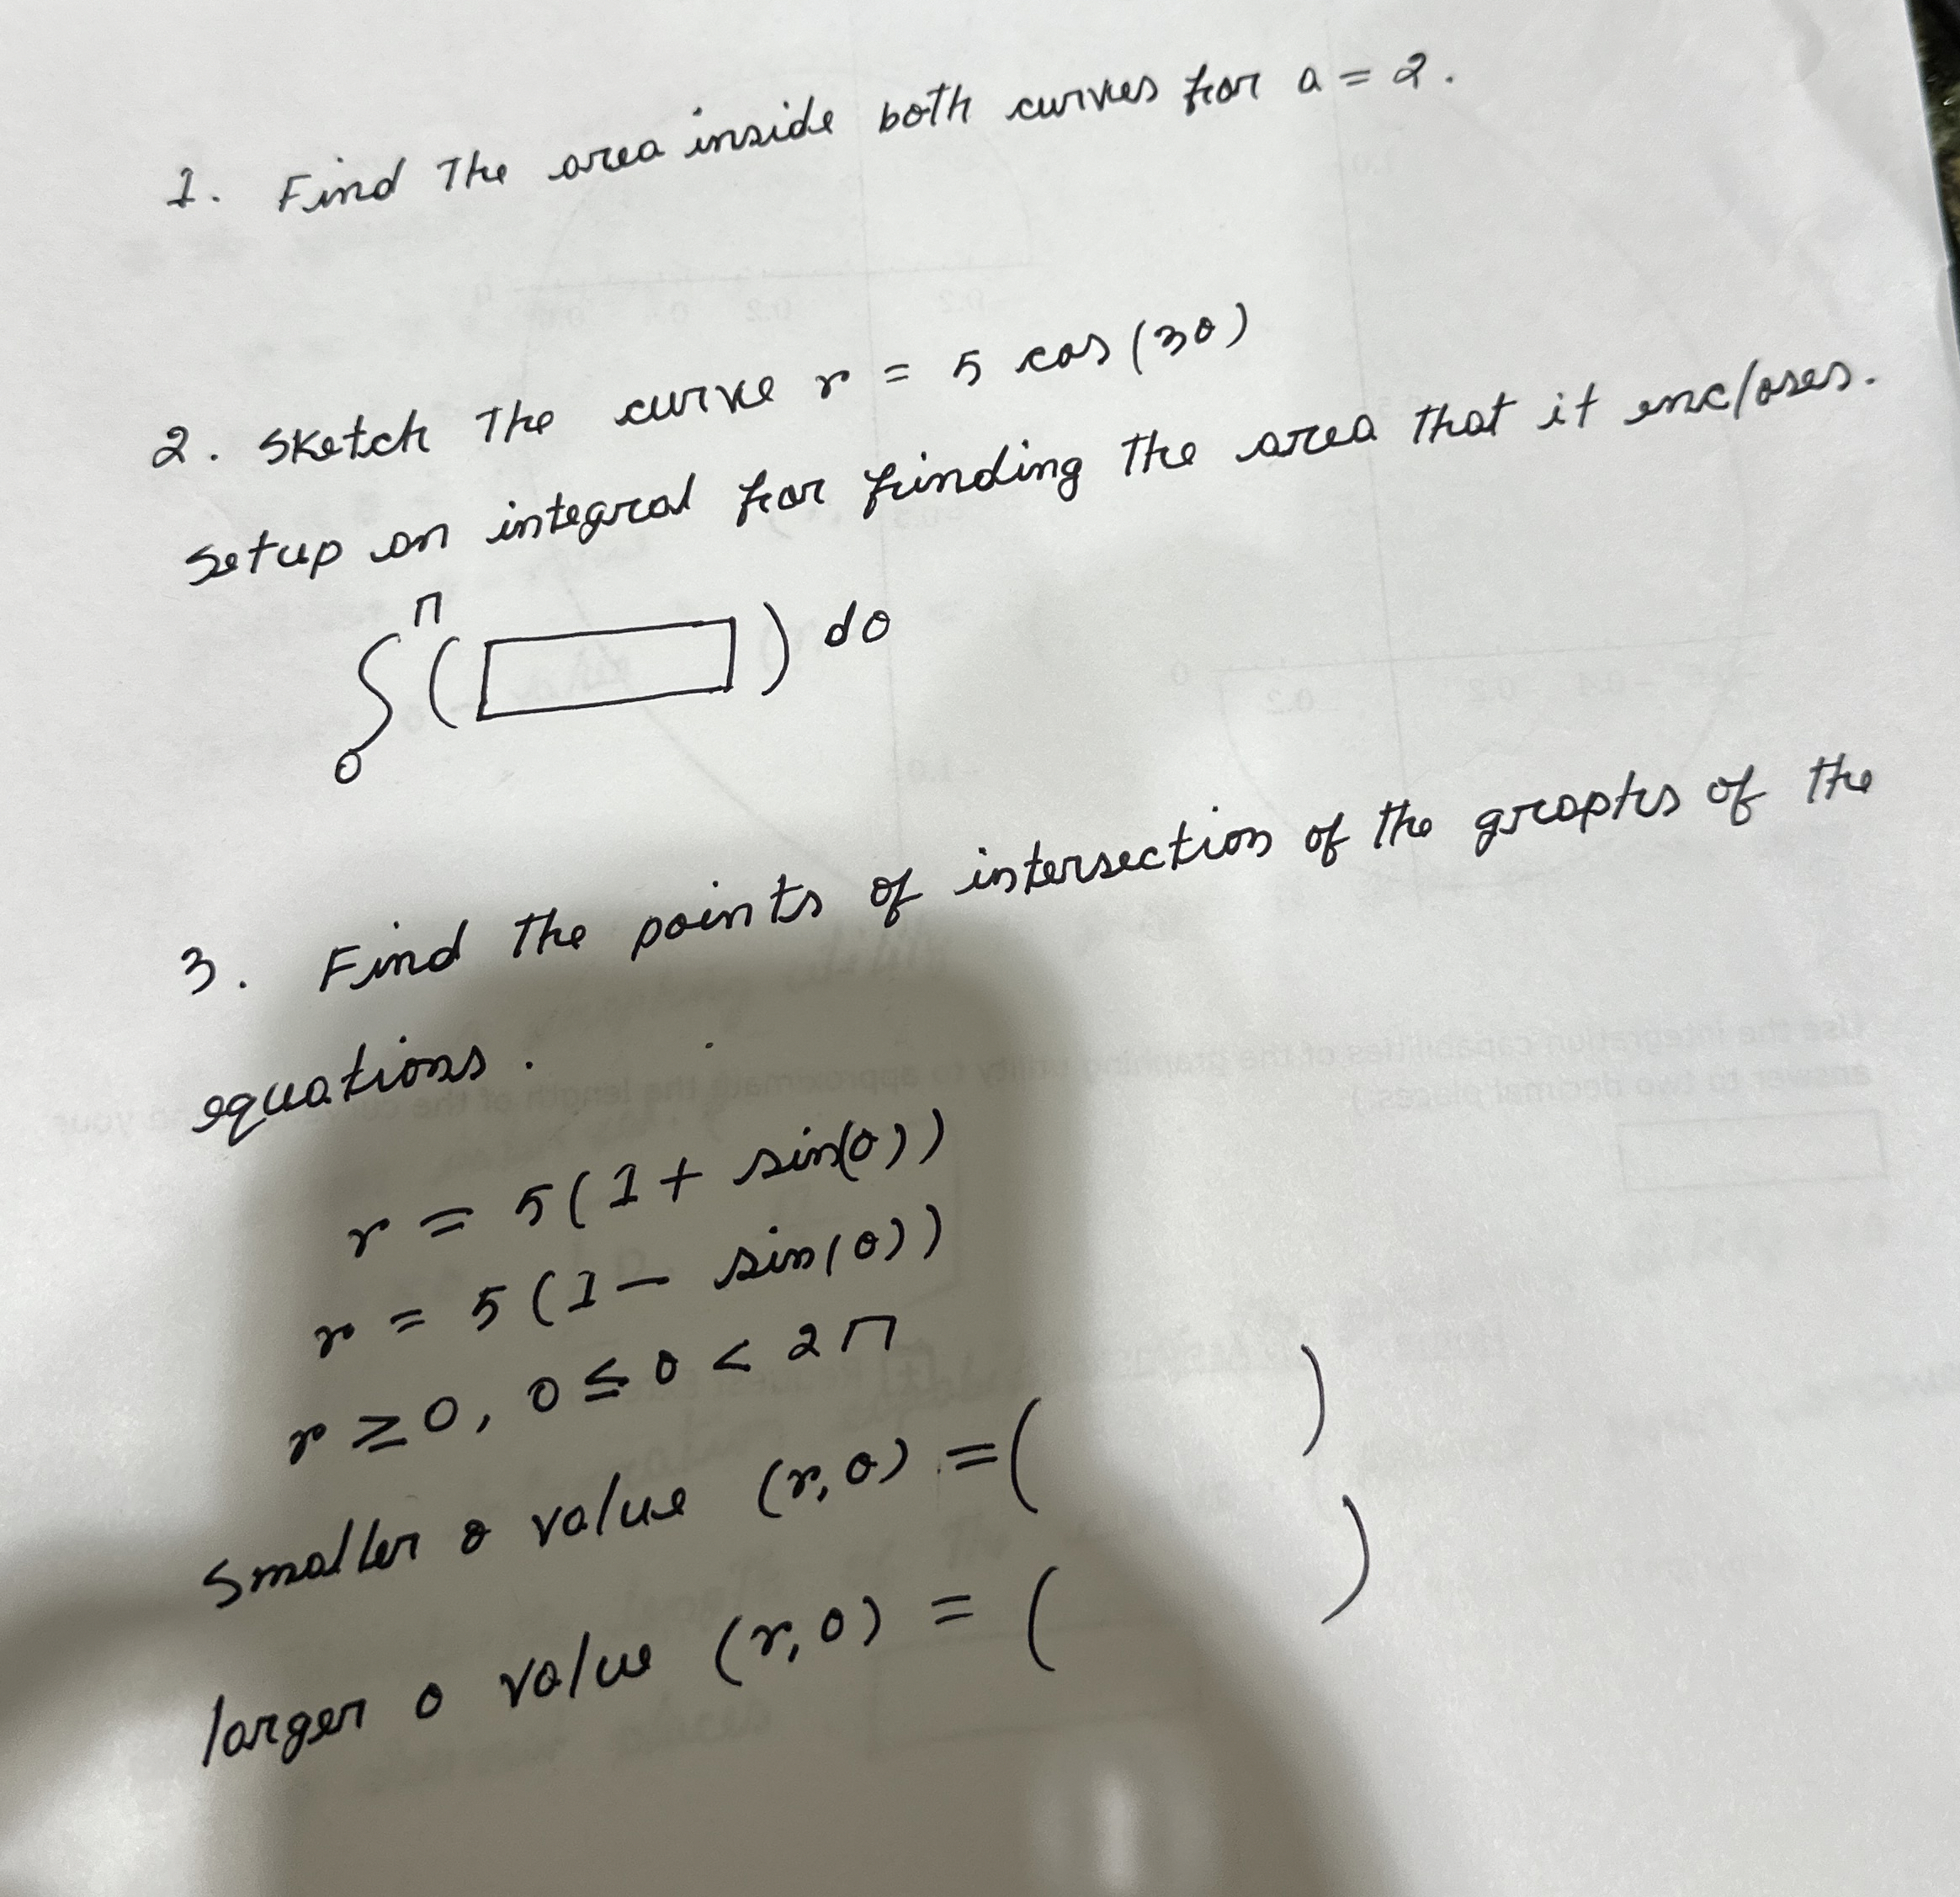 1. Find The area inside both curves for a = 2.
2. Sketch The curve r = 5 cos(3θ)
Setup an integral for finding The area That it encloses.
∫₀^π ( ) dθ
3. Find The points of intersection of the graphs of the
equations.
r = 5(1 + sin(θ))
r = 5(1 - sin(θ))
r ≥ 0, 0 ≤ θ < 2π
Smaller θ value (r, θ) = ( )
larger θ value (r, θ) = ( )